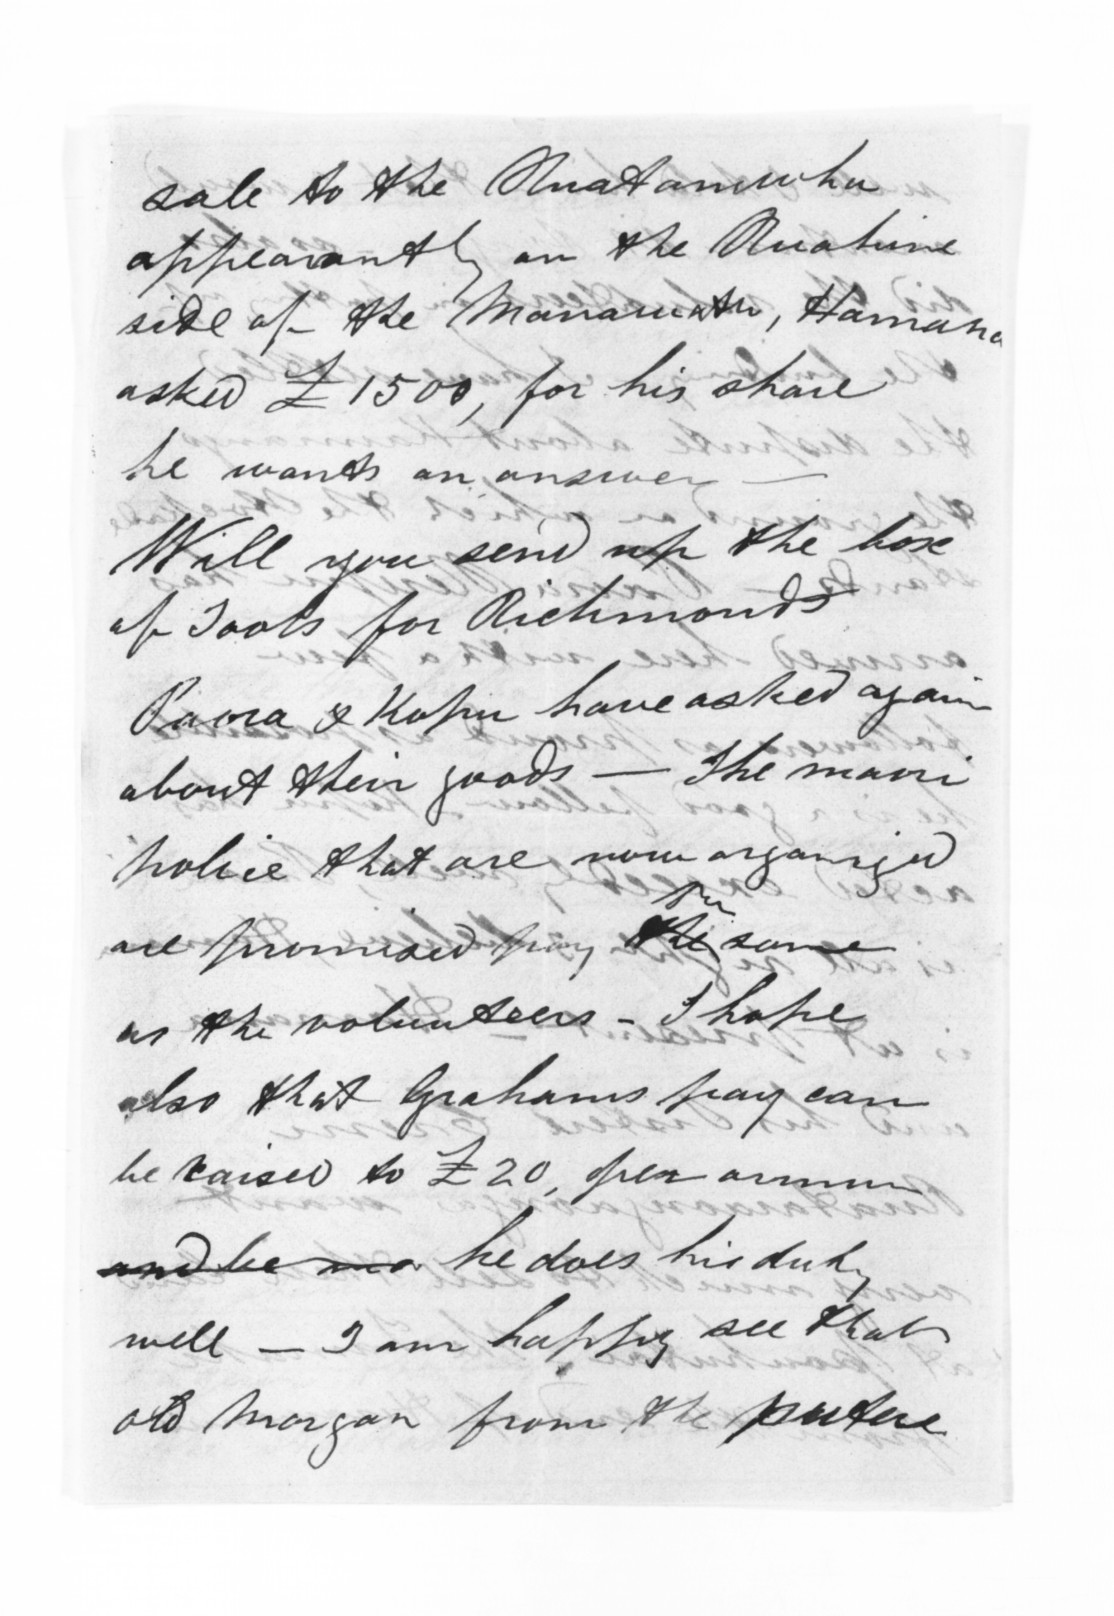 sale to the Ruataniwha
appearantly on the Ruahine
side of the Manawatu, Hamana
asked £1500, for his share
he wants an answer —
Will you send up the box
of Tools for Richmonds
Paora & Kopu have asked again
about their goods — The maori
police that are now organized
are promised pay the same
as the volunteers - I hope
also that Grahams pay can
be raised to £20, per annum
and he he does his duty
well — I am happy see that
old Morgan from the